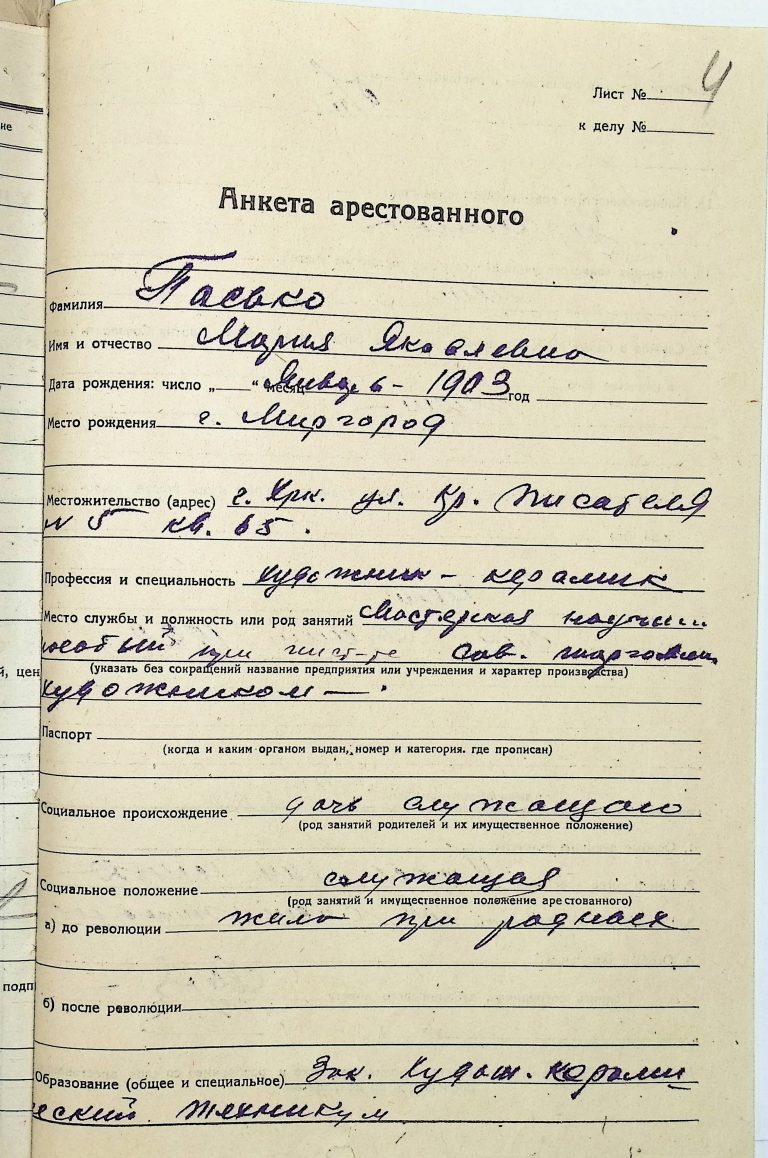 4
Лист №
к делу №
ие
Анкета арестованного
Фамилия Пасько
Имя и отчество Мария Яковлевна
Дата рождения: число „ “ месяц Январь - 1903 год
Место рождения г. Миргород
Местожительство (адрес) г. Хрк. ул. Кр. Писателя
N 5 кв. 65.
Профессия и специальность Художник - керамик
Место службы и должность или род занятий Мастерская
при сов.
й, цен
(указать без сокращений название предприятия или учреждения и характер производства)
художником — .
Паспорт
(когда и каким органом выдан, номер и категория. где прописан)
Социальное происхождение дочь служащего
(род занятий родителей и их имущественное положение)
Социальное положение служащая
(род занятий и имущественное положение арестованного)
а) до революции жила при родных
подп
б) после революции
Образование (общее и специальное) Зак. Худож. керами
ческий техникум